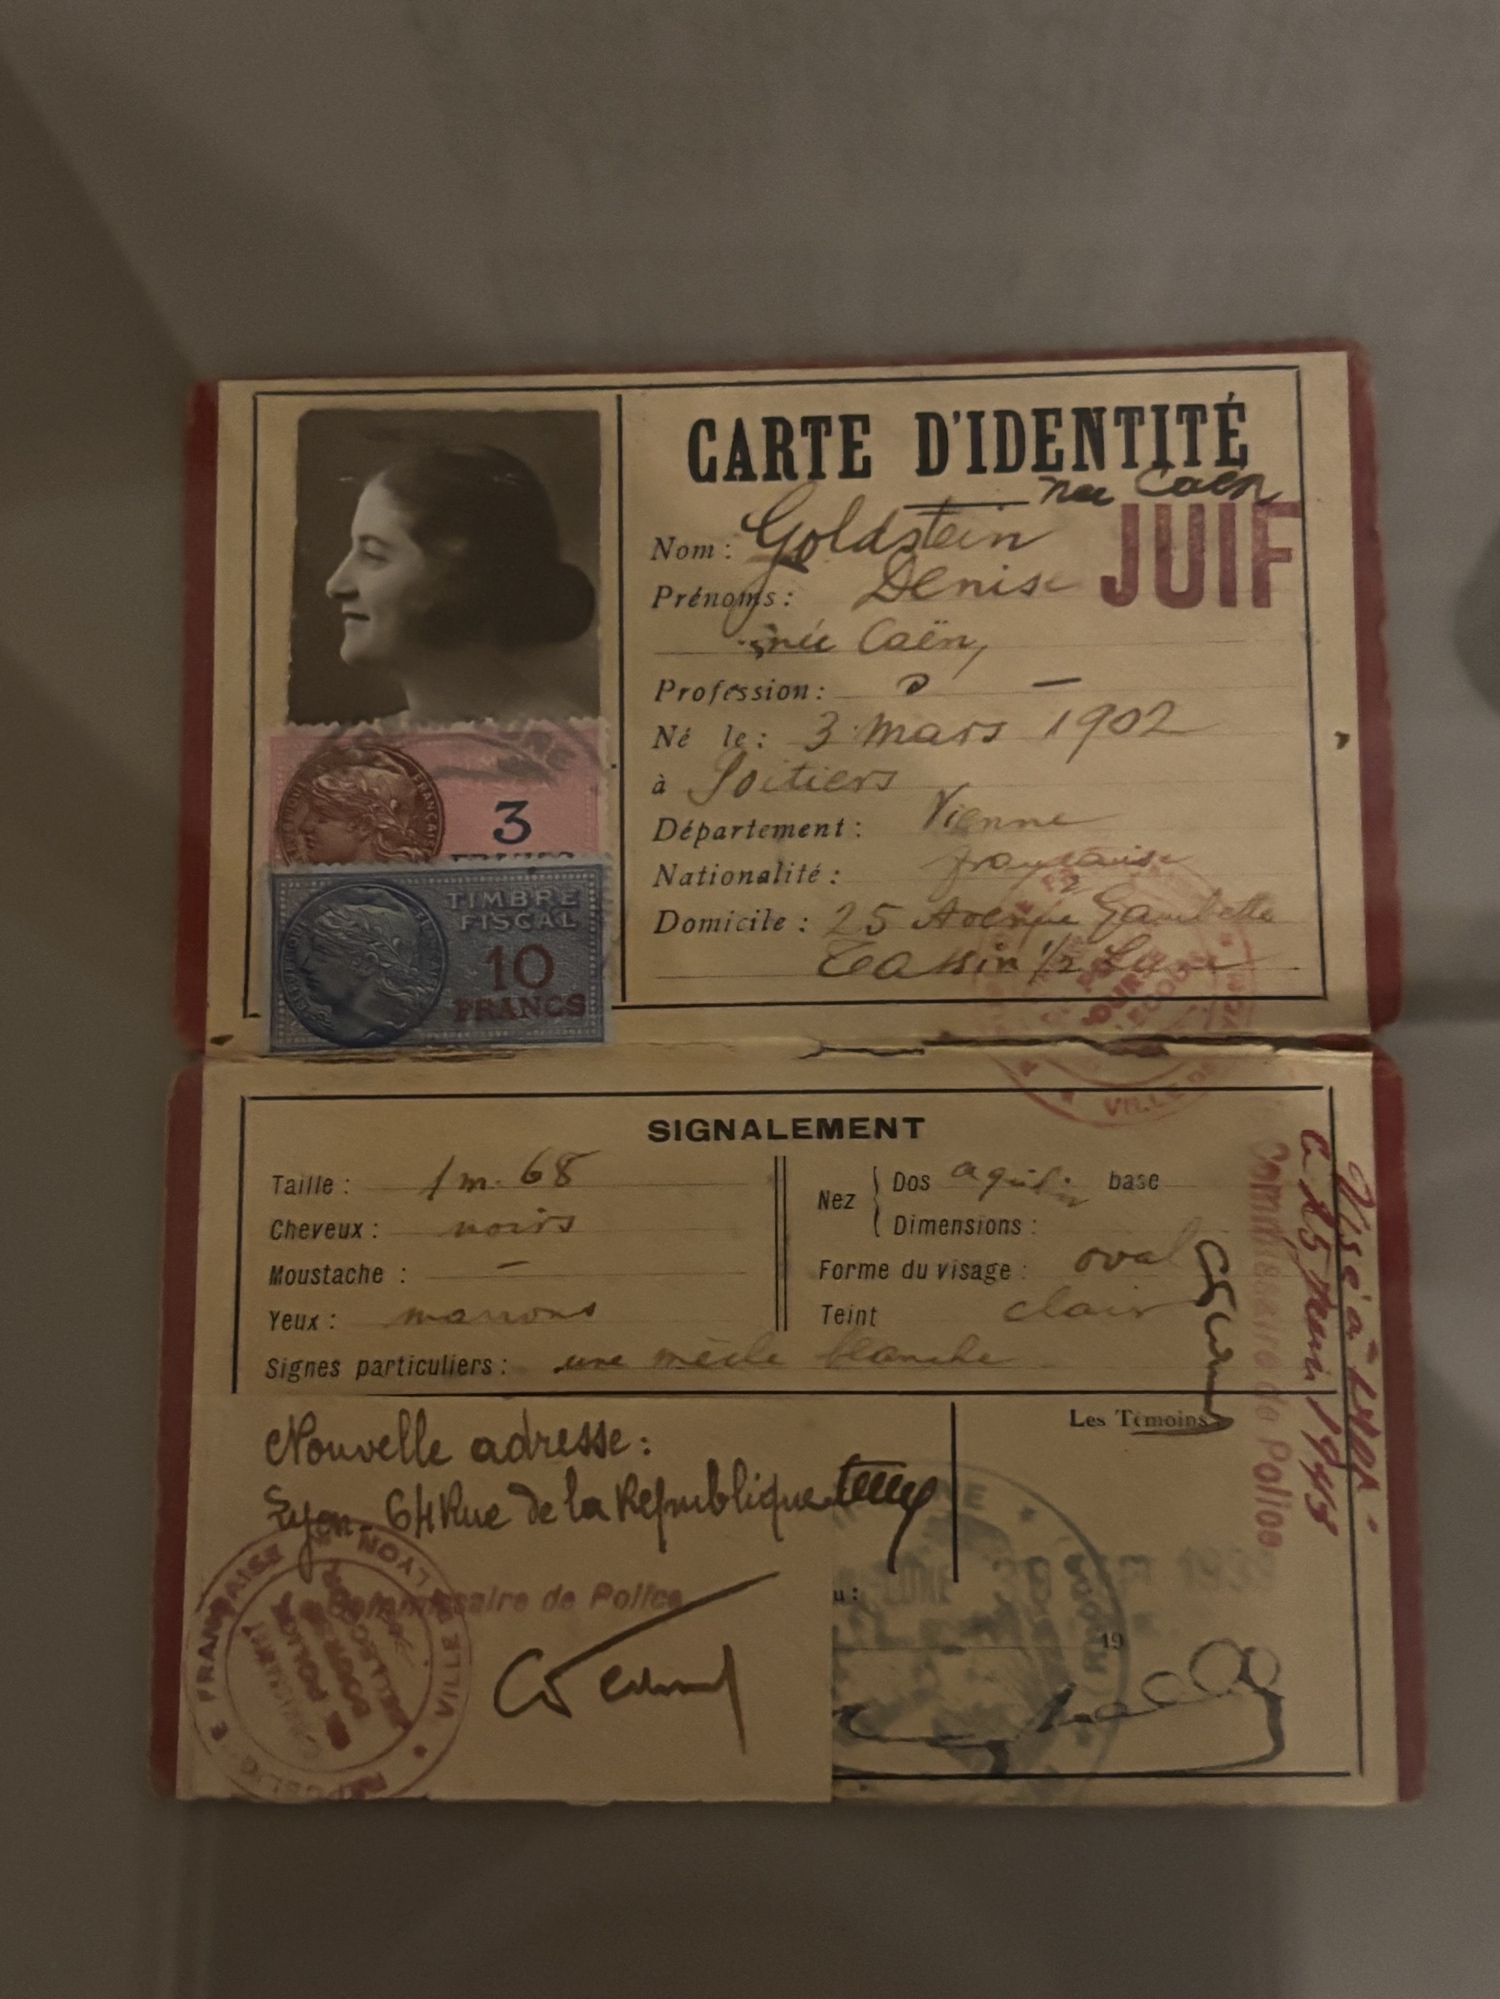 CARTE D'IDENTITÉ
née Caën
Nom : Goldstein
JUIF
Prénoms : Denise
née Caën,
Profession : —
Né le : 3 mars 1902
à Poitiers
Département : Vienne
Nationalité : française
Domicile : 25 Avenue Gambetta
Tassin 1/2 Lune
3
TIMBRE
FISCAL
10
FRANCS
VILLE DE
SIGNALEMENT
Taille : 1m.68
Cheveux : noirs
Moustache : —
Yeux : marrons
Nez
Dos aquilin base
Dimensions :
Forme du visage : oval
Teint clair
Signes particuliers : une mèche blanche
Visé à Lyon
Commissaire de Police
Nouvelle adresse :
Lyon 64 Rue de la République
Les Témoins
Commissaire de Police
FRANÇAISE
VILLE
LYON
19